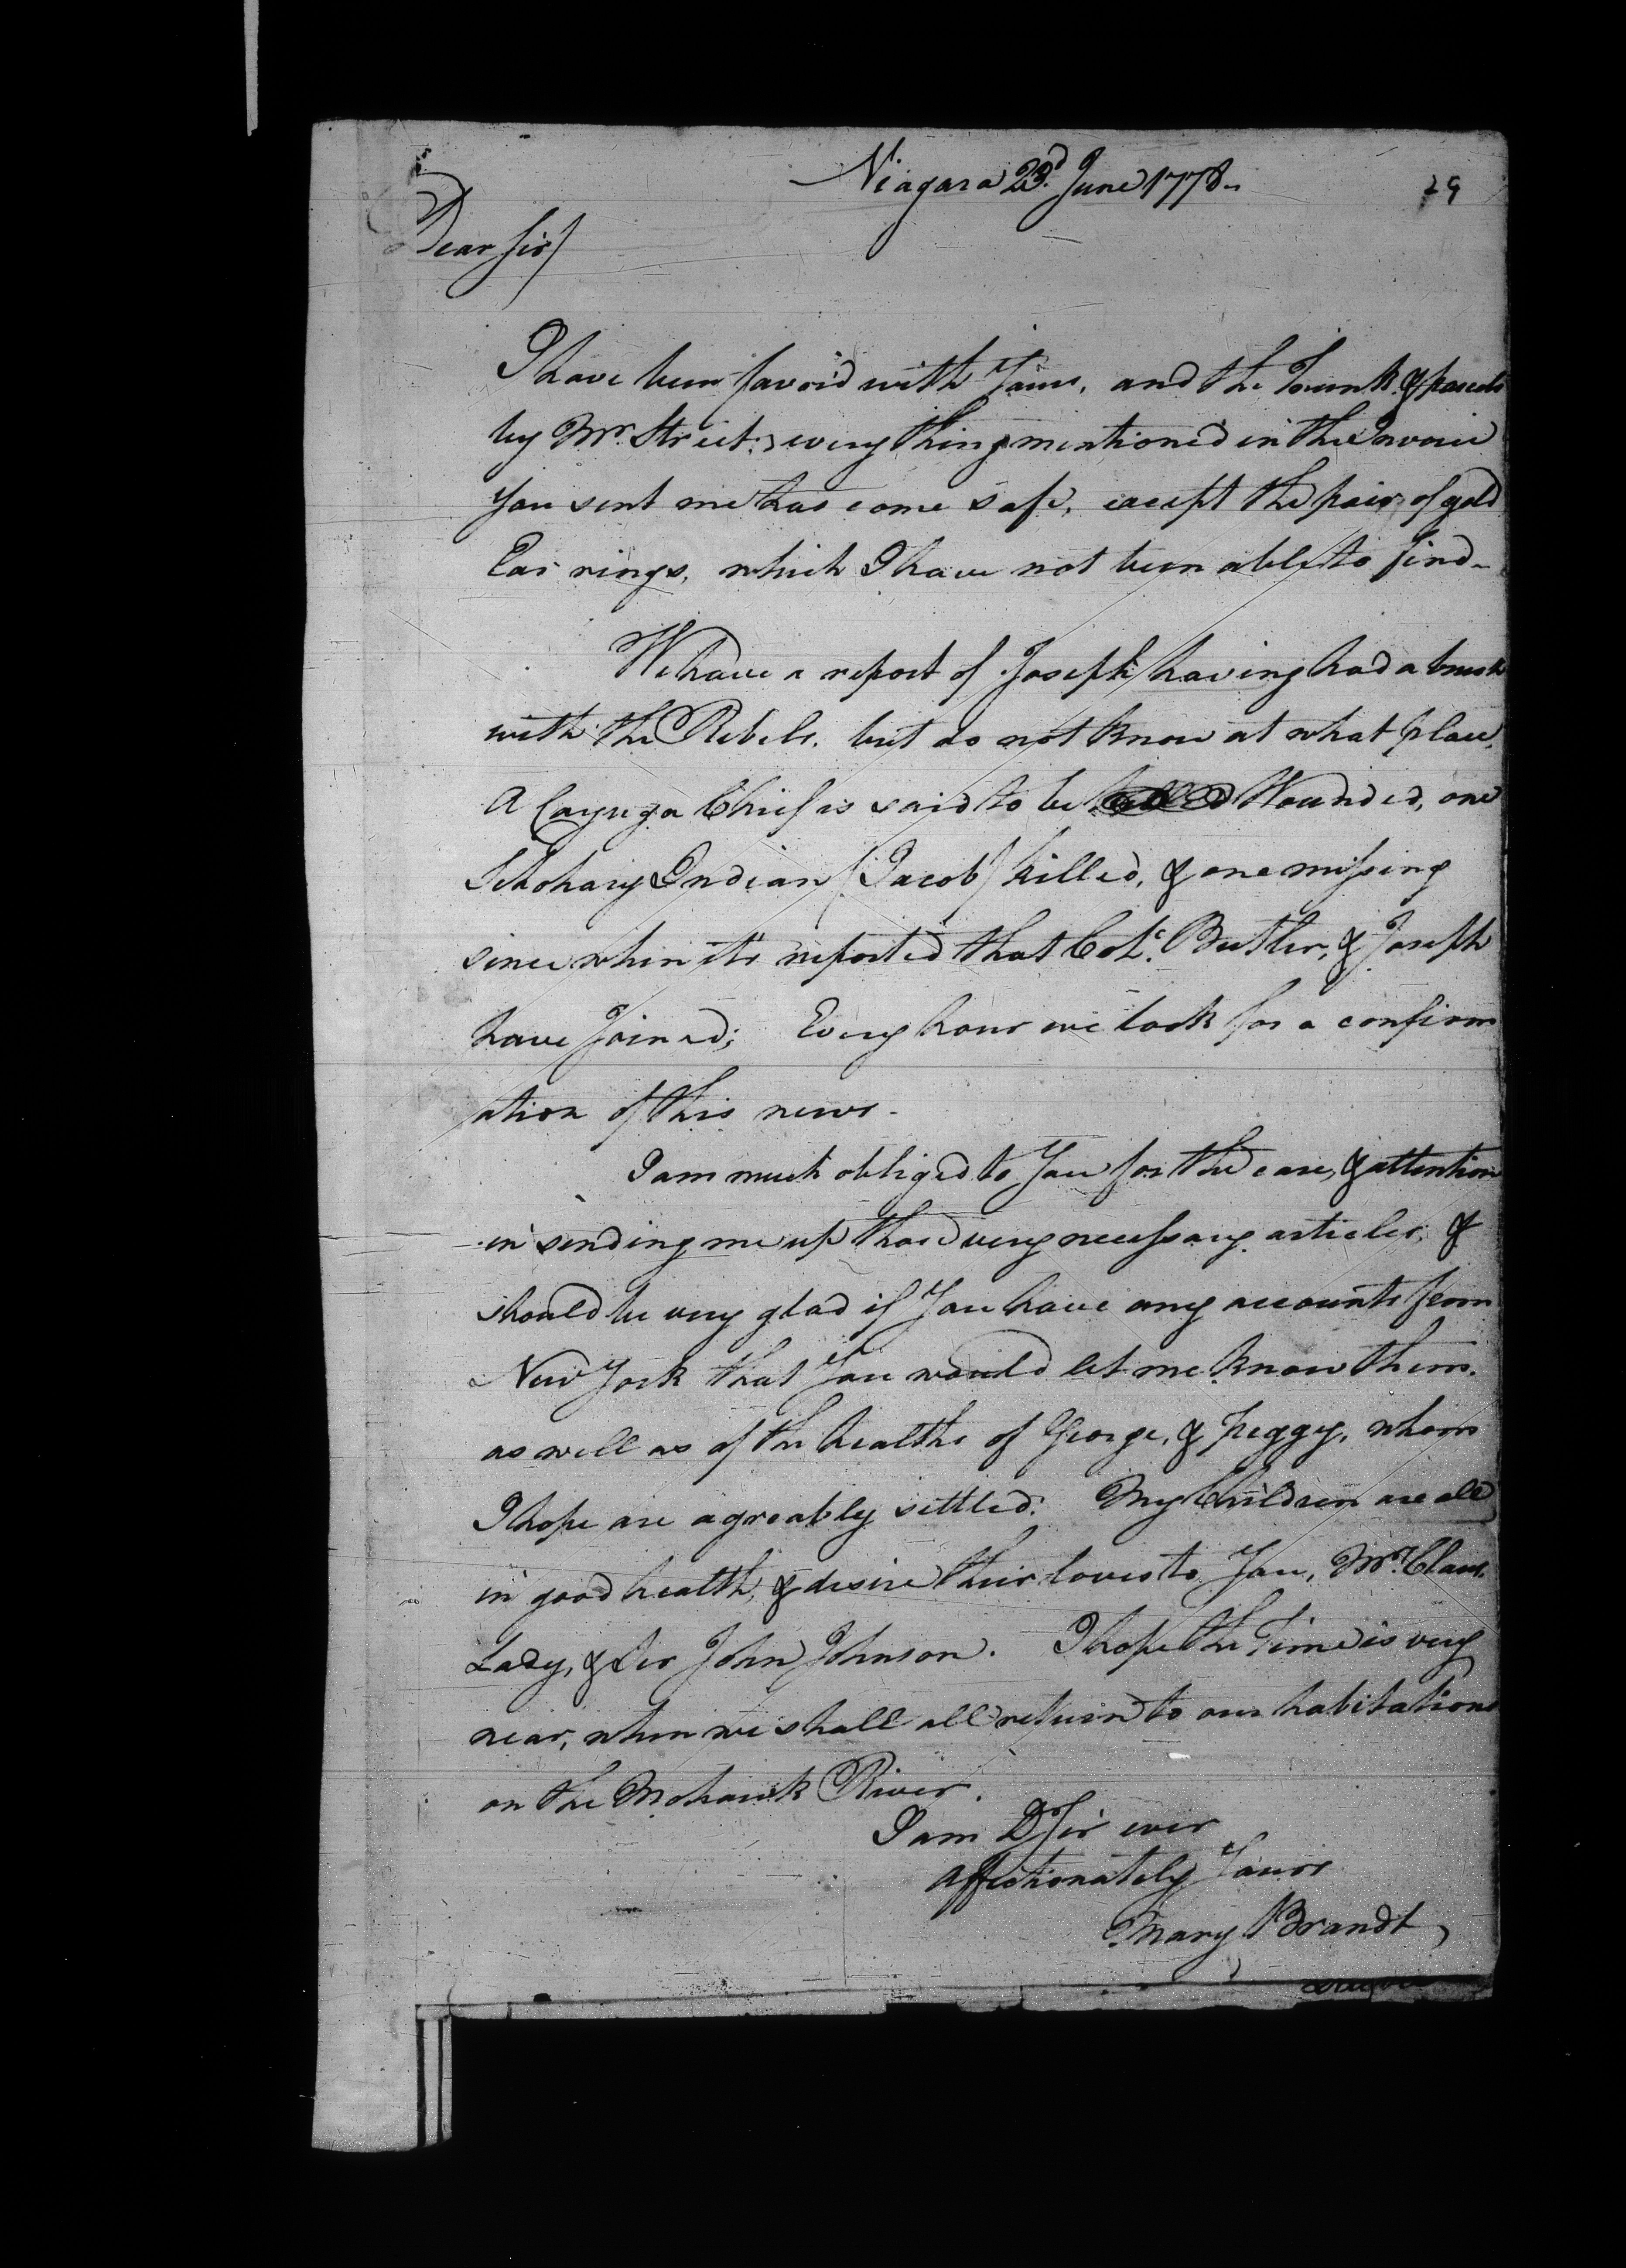 Niagara 23d. June 1778.
29
Dear Sir/
I have been favor'd with Yours, and the Trunk & parcels
by Mr. Street; every thing mentioned in the Invoice
You sent me has come safe, except the pair of gold
Ear rings, which I have not been able to find.
We have a report of Joseph having had a brush
with the Rebels, but do not know at what place.
A Cayuga Chief is said to be Wounded, one
Schohary Indian (Jacob) killed, & one missing
since when it's reported that Colo. Butler, & Joseph
have Joined; Every hour we look for a confirm
ation of this news.
I am much obliged to You for the care, & attention
in sending me up those very necessary articles; &
should be very glad if You have any accounts from
New York that You would let me know them.
as well as of the healths of George, & Peggy, whom
I hope are agreably settled: My Children are all
in good health, & desire their loves to You, Mrs. Claus,
Lady, & Sir John Johnson. I hope the Time is very
near, when we shall all return to our habitations
on the Mohawk River.
I am D Sir ever
Affectionately Yours
Mary Brandt